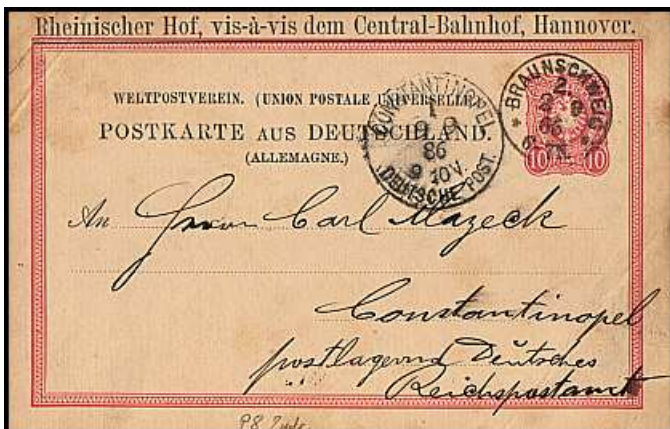 Rheinischer Hof, vis-à-vis dem Central-Bahnhof, Hannover.
WELTPOSTVEREIN. (UNION POSTALE UNIVERSELLE)
POSTKARTE AUS DEUTSCHLAND.
(ALLEMAGNE.)
KONSTANTINOPEL
1
86
9 10 V.
DEUTSCHE POST.
* BRAUNSCHWEIG *
2
86
10 10
An Herrn Carl Mazeck
Constantinopel
postlagernd Deutsches
Reichspostamt
P8